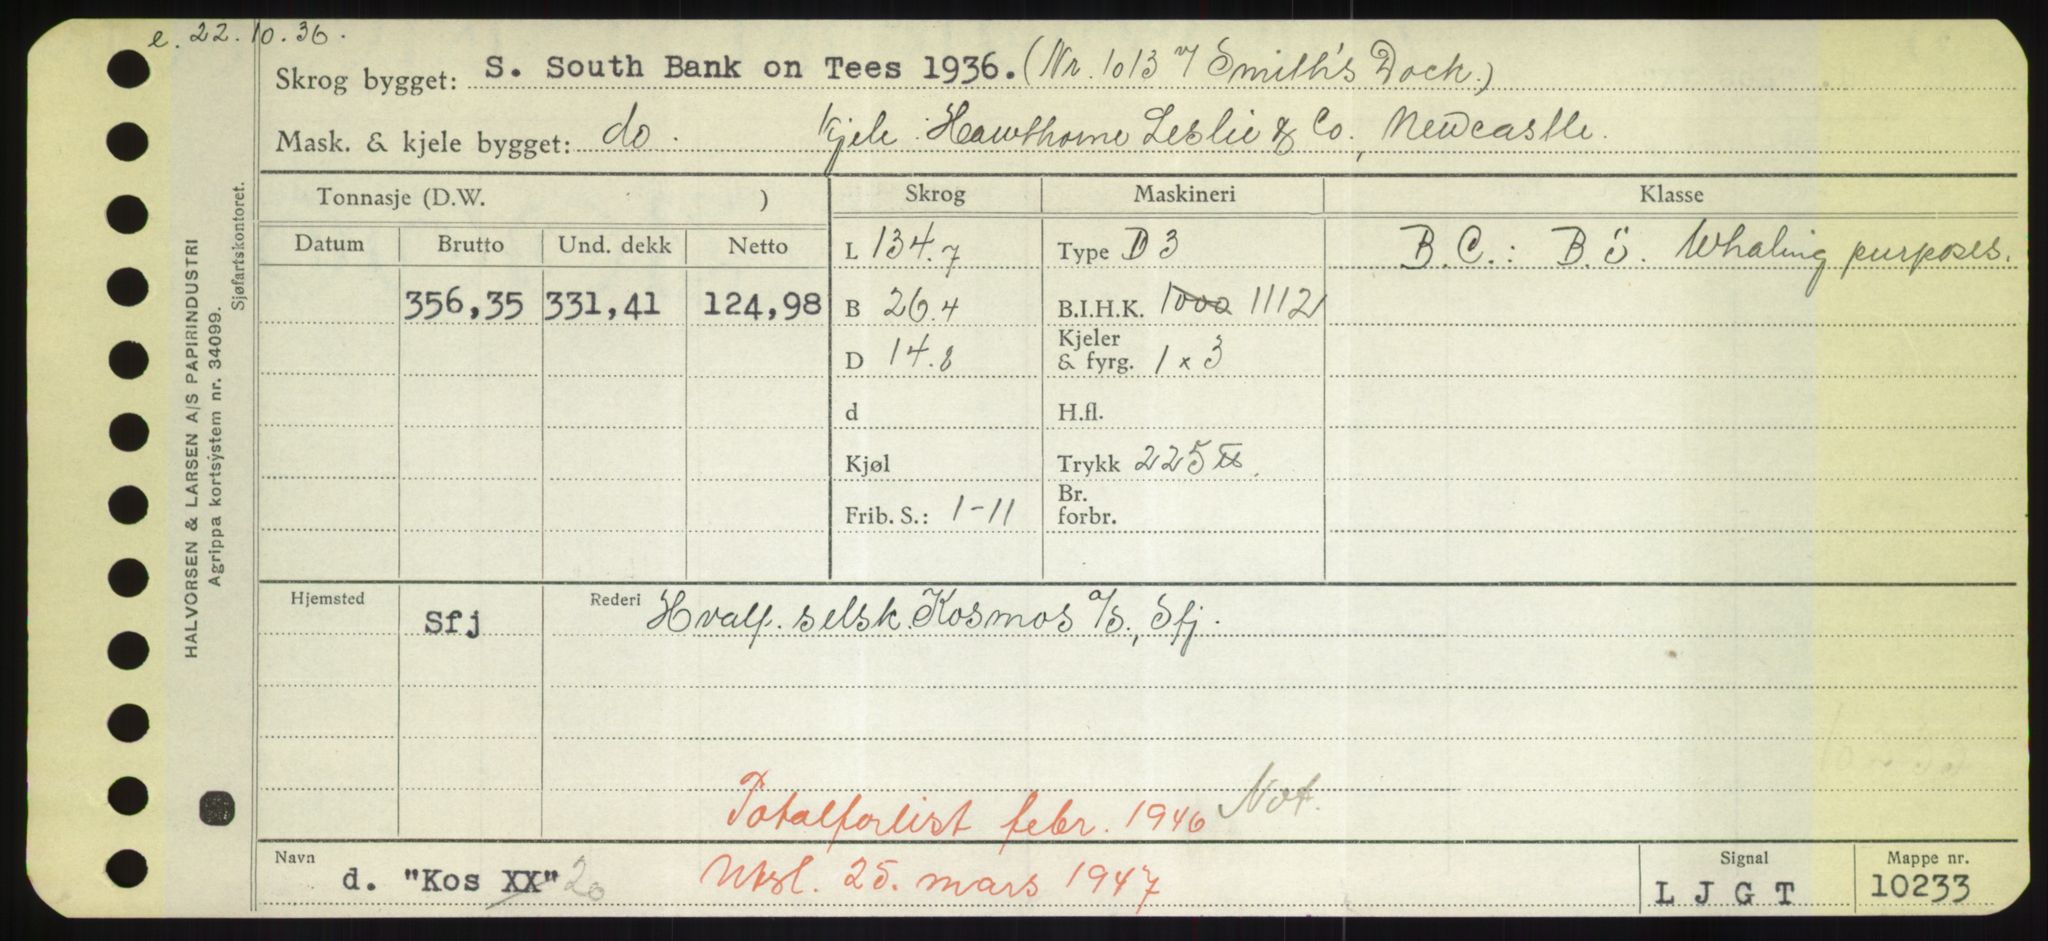 e. 22.10.36.
Skrog bygget: S. South Bank on Tees 1936. (Nr. 1013 v/ Smith's Dock.)
Mask. & kjele bygget: do. Kjele: Hawthorne Leslie & Co., Newcastle.
Tonnasje (D.W. )
Skrog
Maskineri
Klasse
Datum
Brutto
Und. dekk
Netto
L 134.7
Type D 3
B.C.: B.S. Whaling purposes.
356,35
331,41
124,98
B 26.4
B.I.H.K. 1000 1112
D 14.8
Kjeler
& fyrg. 1 x 3
d
H.fl.
Kjøl
Trykk 225 lbs.
Frib. S.: 1-11
Br.
forbr.
Hjemsted
Sfj
Rederi
Hvalf. selsk. Kosmos A/S., Sfj.
Totalforlist febr. 1946 Not.
Navn
d. "Kos XX" 20
Utsl. 25. mars 1947
Signal
L J G T
Mappe nr.
10233
HALVORSEN & LARSEN A/S PAPIRINDUSTRI
Agrippa kortsystem nr. 34099.
Sjøfartskontoret.